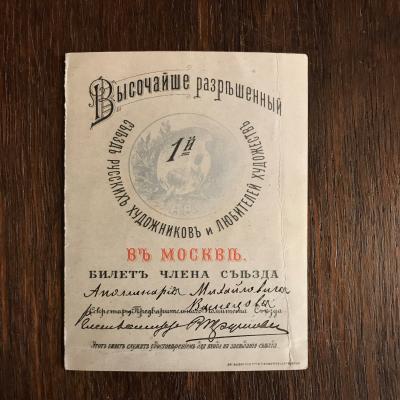 Высочайше разрѣшенный
1й
съѣздъ русскихъ художниковъ и любителей художествъ
ВЪ МОСКВѢ.
БИЛЕТЪ ЧЛЕНА СЪѢЗДА
Аполинарія Михайловича
Васнецова
Секретарь Предварительнаго Комитета Съѣзда
Этотъ билетъ служитъ удостовѣреніемъ для входа на засѣданія съѣзда.